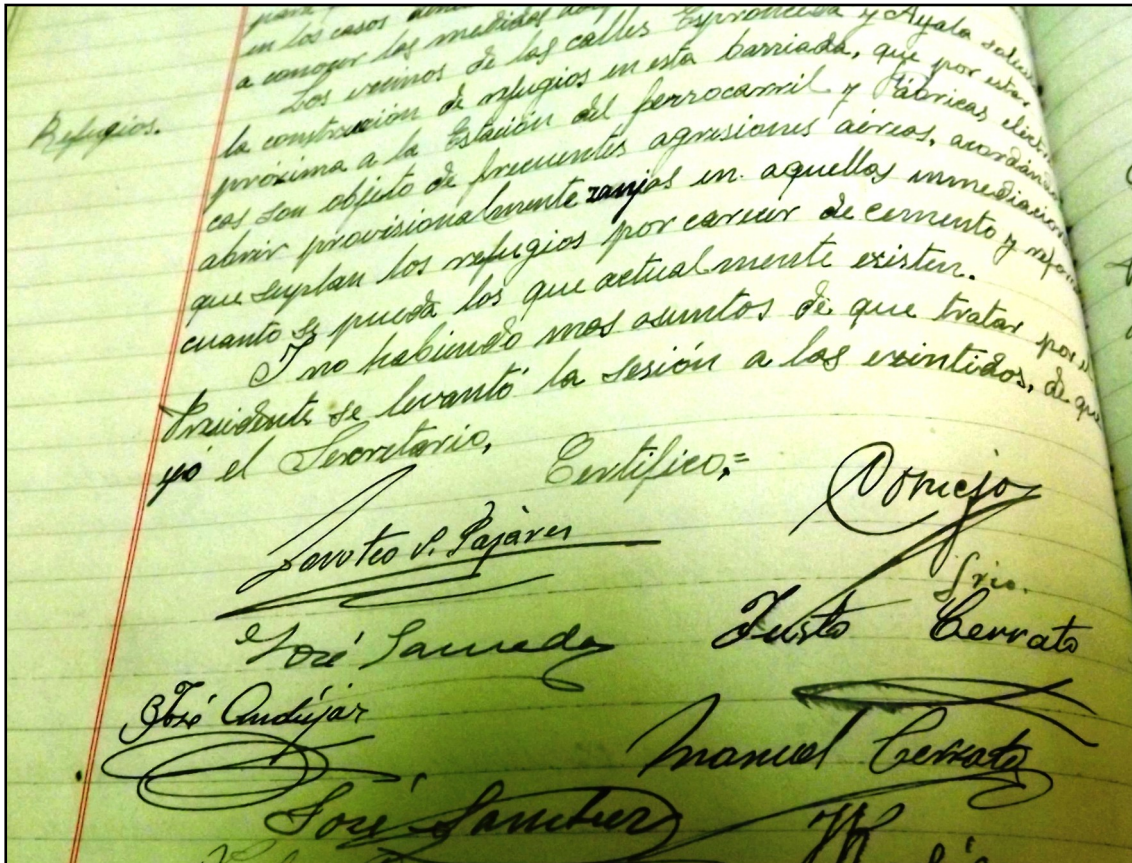 en los casos
a conocer las medidas
Los vecinos de las calles Espronceda y Ayala
Refugios.
la construcción de refugios en esta barriada, que por estar
próxima a la Estación del ferrocarril y Fábricas eléctri
cas son objeto de frecuentes agresiones aéreas, acordán
abrir provisionalmente zanjas en aquellas inmediacion
que suplan los refugios por carecer de cemento y refor
cuanto se pueda los que actualmente existen.
Y no habiendo mas asuntos de que tratar por
Presidente se levantó la sesión a las veintidos, de que
yo el Secretario, Certifico,=
P. Pajares
Conejo
Srio.
José
Justo Cerrato
José Andújar
Manuel Cerrato
José Sanchez